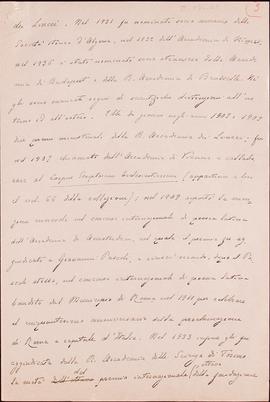 3
dei Lincei. Nel 1931 fu nominato socio onorario della
Società storica d'Algeria, nel 1932 dell'Accademia di Napoli,
nel 1936 è stato nominato socio straniero della Accade-
mia di Budapest e della R. Accademia di Bruxelles. Né
gli sono mancati segni di onorifiche distinzioni all'in-
terno ed all'estero. Ebbe di premi negli anni 1902 e 1903
due premi ministeriali della R. Accademia dei Lincei; fu
nel 1903 chiamato dall'Accademia di Vienna a collabo-
rare al Corpus Scriptorum Ecclesiasticorum (appartiene a lui
il vol. 66 della collezione); nel 1909 riportò la men-
zione onorevole nel concorso internazionale di poesia latina
dell'Accademia di Amsterdam, nel quale il premio fu ag-
giudicato a Giovanni Pascoli, e riuscì secondo, dopo il Pa-
scoli stesso, nel concorso internazionale di poesia latina
bandito dal Municipio di Roma nel 1911 per celebrare
il cinquantesimo anniversario della proclamazione
di Roma a capitale d'Italia. Nel 1933 infine gli fu
aggiudicata dalla R. Accademia delle Scienze di Torino
la metà del premio internazionale della fondazione